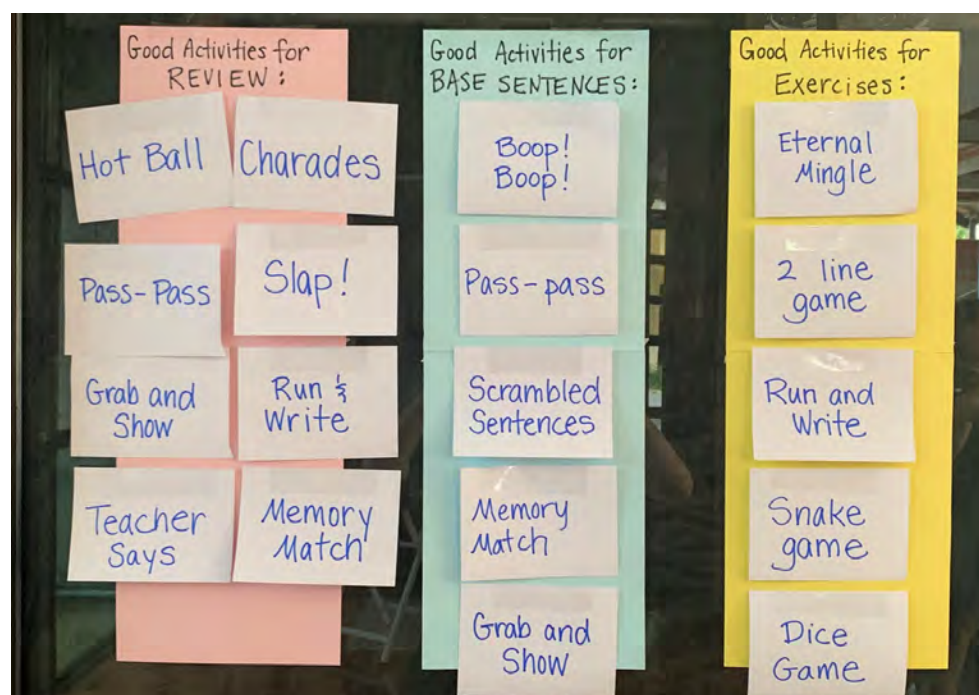 Good Activities for
REVIEW :
Hot Ball
Charades
Pass-Pass
Slap!
Grab and
Show
Run &
Write
Teacher
Says
Memory
Match
Good Activities for
BASE SENTENCES:
Boop!
Boop!
Pass-pass
Scrambled
Sentences
Memory
Match
Grab and
Show
Good Activities for
Exercises:
Eternal
Mingle
2 line
game
Run and
Write
Snake
game
Dice
Game